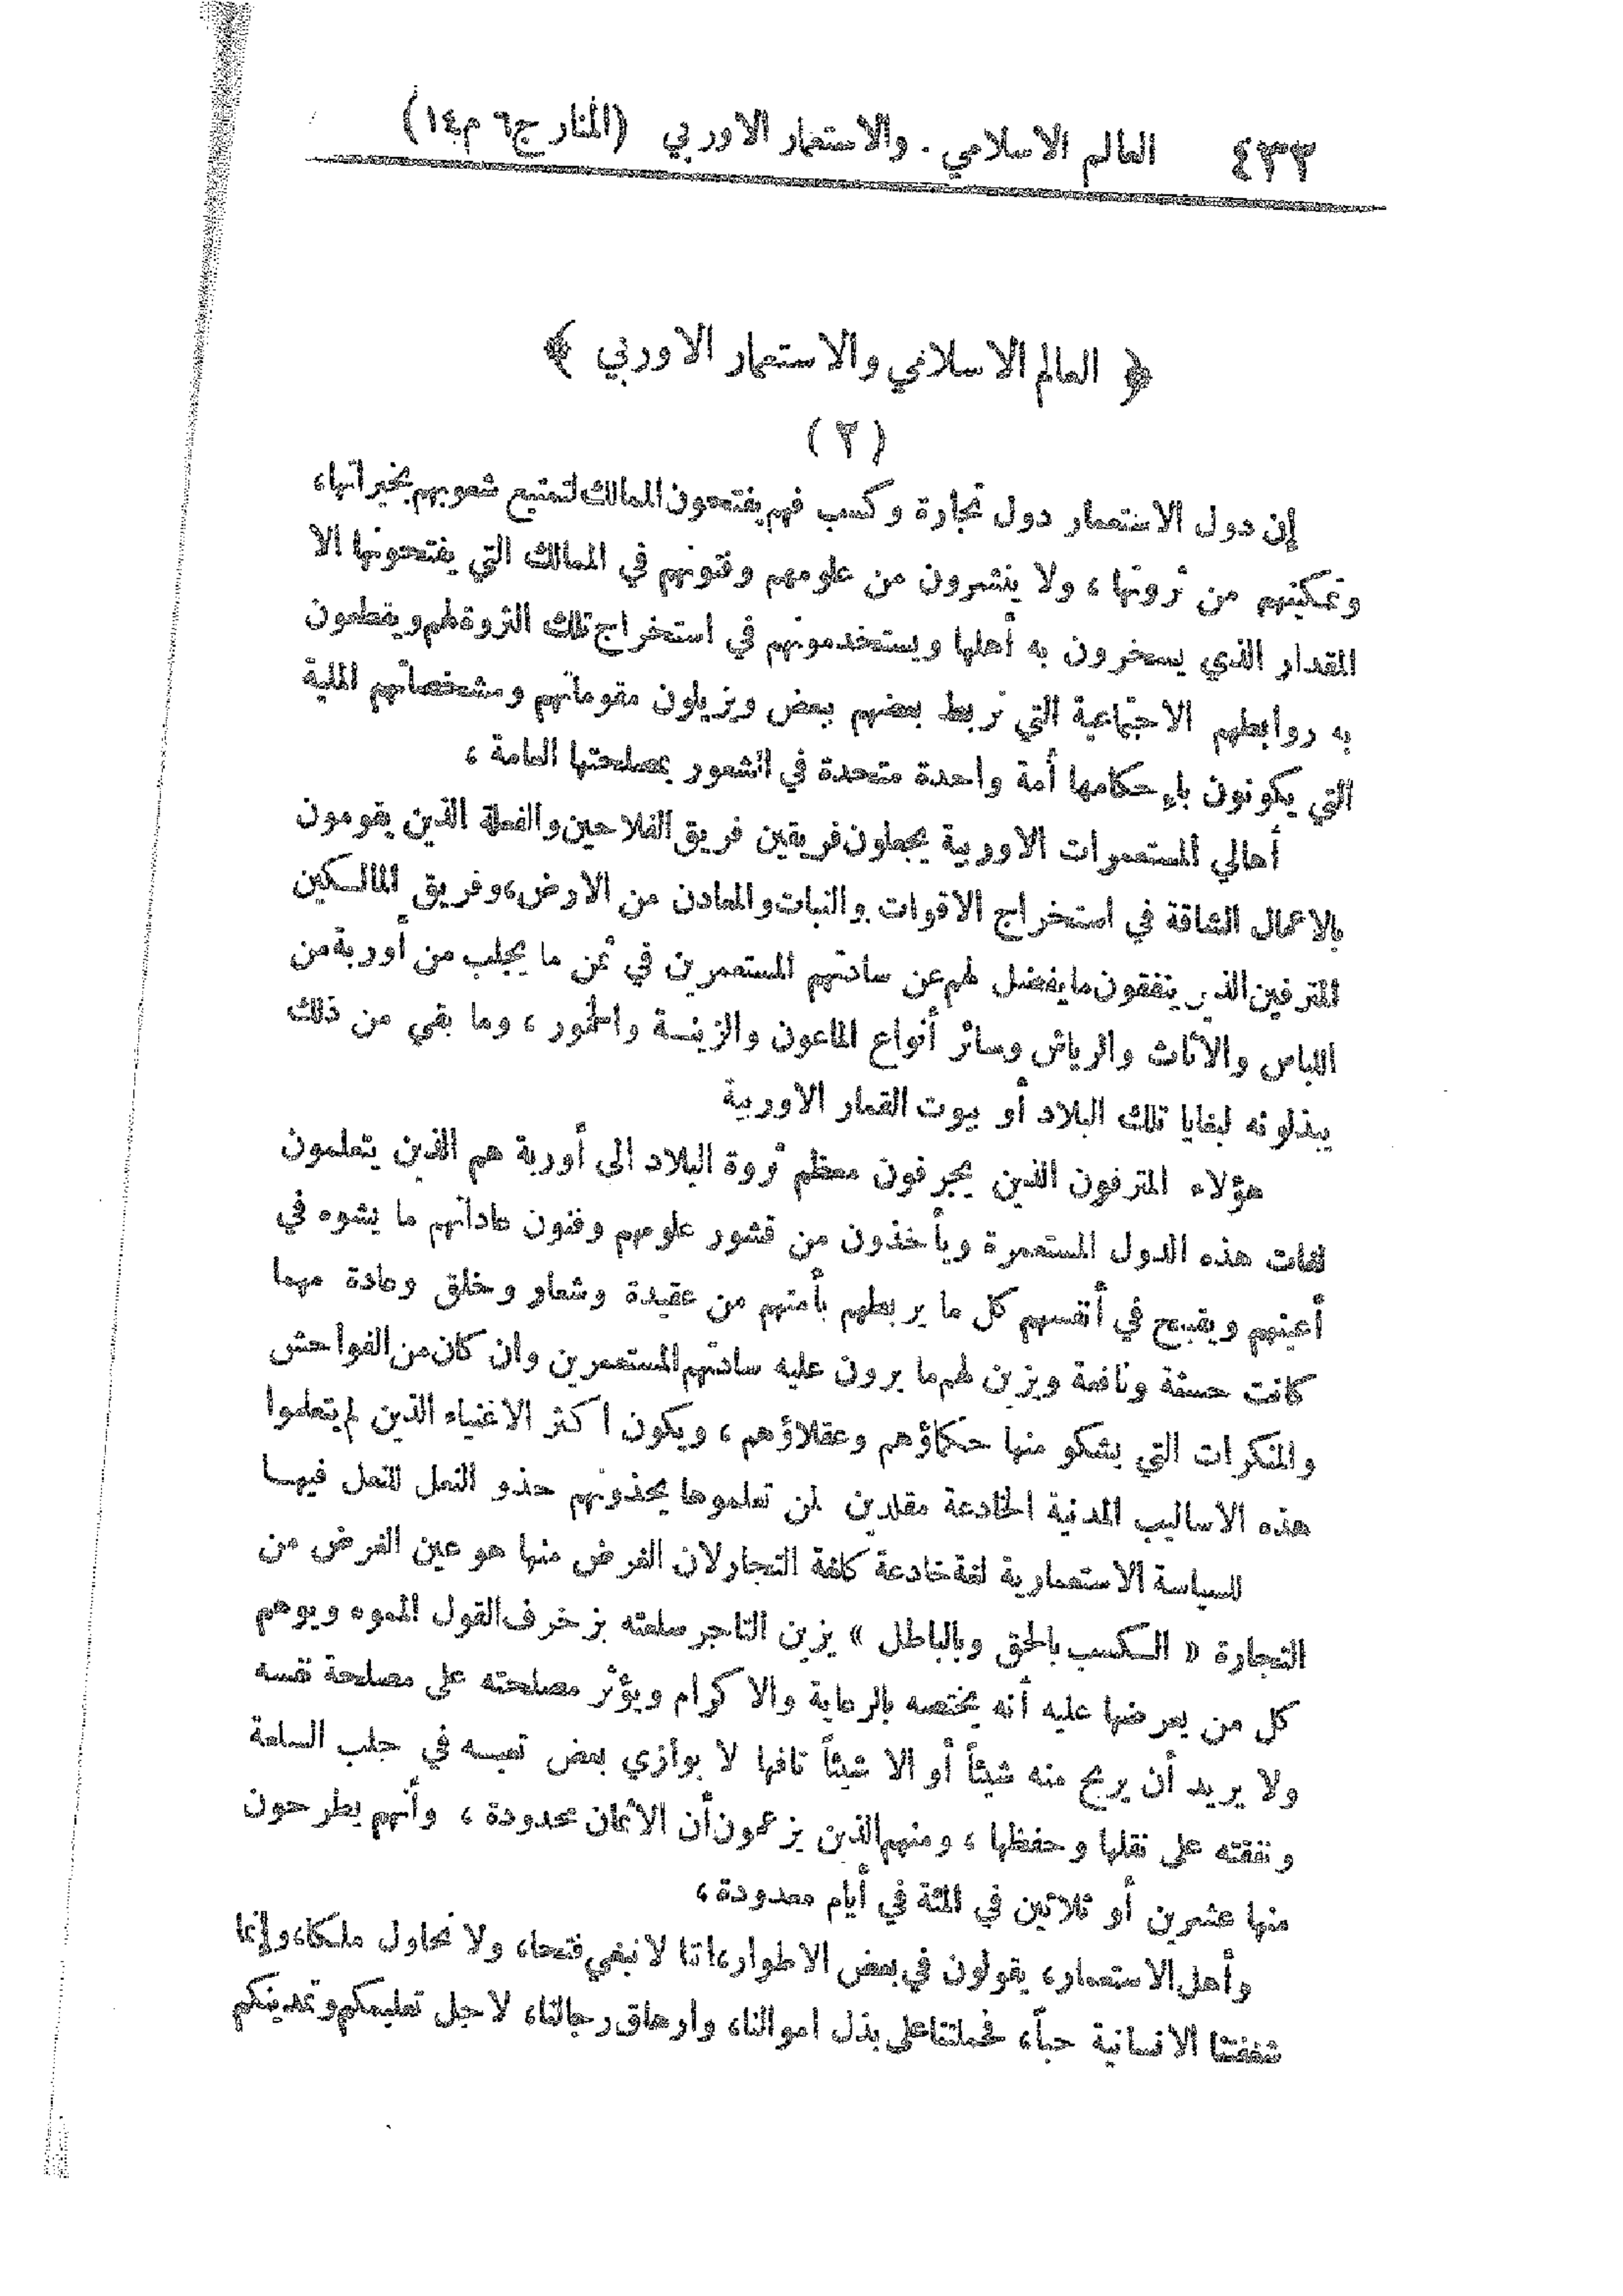 ٤٣٢ العالم الاسلامي . والاستعمار الاوربي (المنار ج٦ م١٤)
﴿ العالم الاسلامي والاستعمار الاوربي ﴾
( ٢ )
إن دول الاستعمار دول تجارة وكسب فهم يفتحون الممالك لتمتيع شعوبهم بخيراتها،
وتمكينهم من ثروتها ، ولا ينشرون من علومهم وفنونهم في الممالك التي يفتحونها الا
المقدار الذي يسخرون به أهلها ويستخدمونهم في استخراج تلك الثروة لهم ويقطعون
به روابطهم الاجتماعية التي تربط بعضهم ببعض ويزيلون مقوماتهم ومشخصاتهم الملية
التي يكونون باءحكامها أمة واحدة متحدة في الشعور بمصلحتها العامة ،
أهالي المستعمرات الاوربية يجعلون فريقين فريق الفلاحين والفعلة الذين يقومون
بالاعمال الشاقة في استخراج الاقوات والنبات والمعادن من الارض، وفريق المالكين
المترفين الذين ينفقون ما يفضل لهم عن سادتهم المستعمرين في ثمن ما يجلب من أوربة من
اللباس والأثاث والرياش وسائر أنواع الماعون والزينة والخمور ، وما بقي من ذلك
يبذلونه لبغايا تلك البلاد أو بيوت القمار الاوربية
هؤلاء المترفون الذين يجرفون معظم ثروة البلاد الى أوربة هم الذين يتعلمون
لغات هذه الدول المستعمرة ويأخذون من قشور علومهم وفنون عاداتهم ما يشوه في
أعينهم ويقبح في أنفسهم كل ما يربطهم بأمتهم من عقيدة وشعار وخلق وعادة مهما
كانت حسنة ونافعة ويزين لهم ما يرون عليه سادتهم المستعمرين وان كان من الفواحش
والمنكرات التي يشكو منها حكماؤهم وعقلاؤهم ، ويكون أكثر الاغنياء الذين لم يتعلموا
هذه الاساليب المدنية الخادعة مقلدين لمن تعلموها يحذونهم حذو النعل للنعل فيها
للسياسة الاستعمارية لغة خادعة كلغة التجار لان الغرض منها هو عين الغرض من
التجارة « الكسب بالحق وبالباطل » يزين التاجر سلعته بزخرف القول المموه ويوهم
كل من يعرضها عليه أنه يختصه بالرعاية والاكرام ويؤثر مصلحته على مصلحة نفسه
ولا يريد أن يربح منه شيئاً أو الا شيئاً تافها لا يوازي بعض تعبه في جلب السلعة
ونفقته على نقلها وحفظها ، ومنهم الذين يزعمون أن الأثمان محدودة ، وأنهم يطرحون
منها عشرين أو ثلاثين في المئة في أيام معدودة ،
وأهل الاستعمار، يقولون في بعض الاطوار، اننا لا نبغي فتحا، ولا نحاول ملكا، وإنما
شغفتنا الانسانية حباً، فحملتنا على بذل اموالنا، وارهاق رجالنا، لاجل تعليمكم وتمدينكم